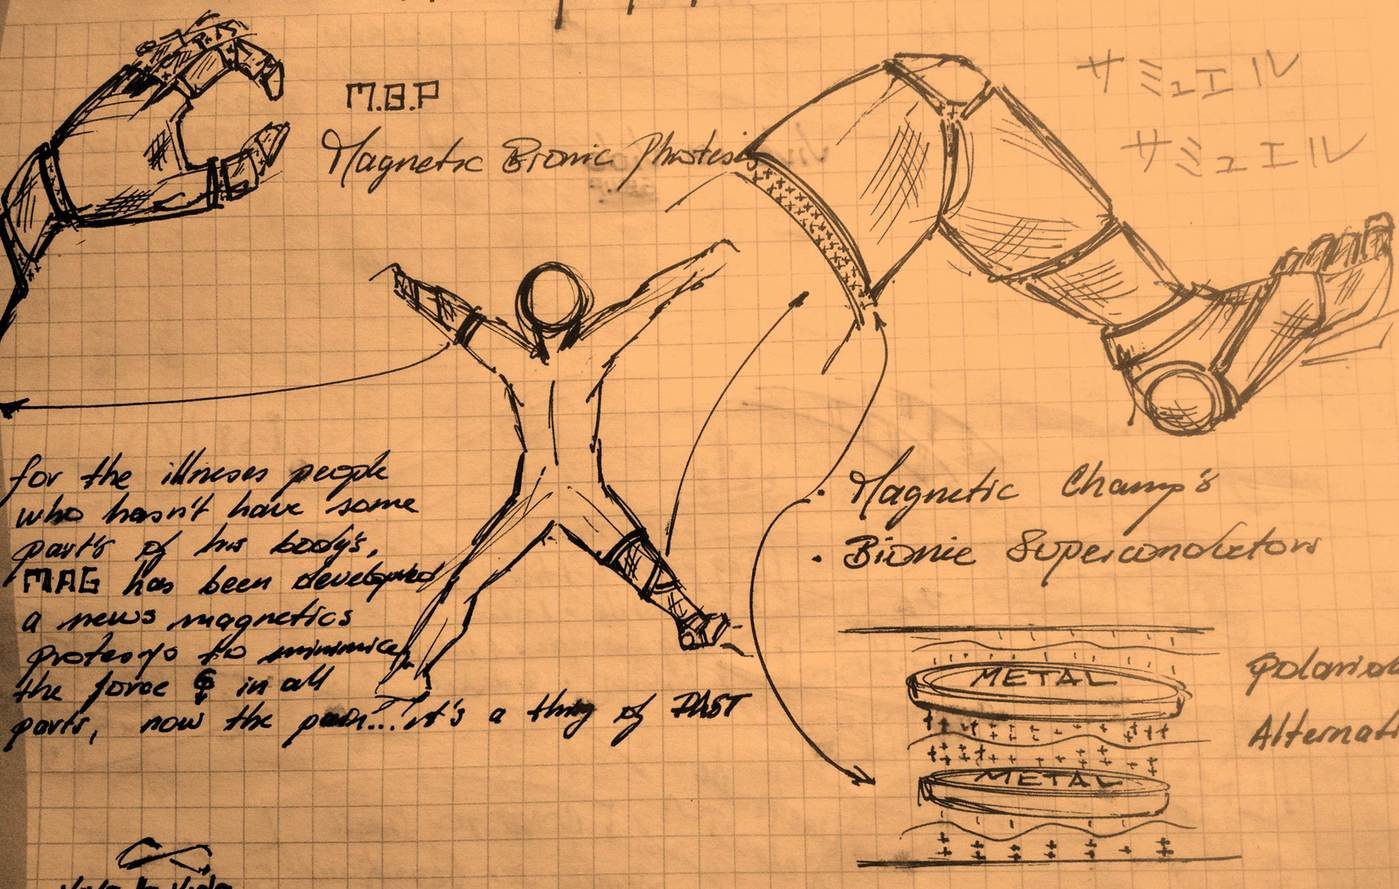 M.B.P
Magnetic Bionic Photesis
サミュエル
サミュエル
for the illneses people
who hasn't have some
part's of his body's,
MAG has been developed
a news magnetics
protesys to minimice
the force in all
parts, now the pain... it's a thing of PAST
Magnetic Champ's
Bionic Superconductors
METAL
METAL